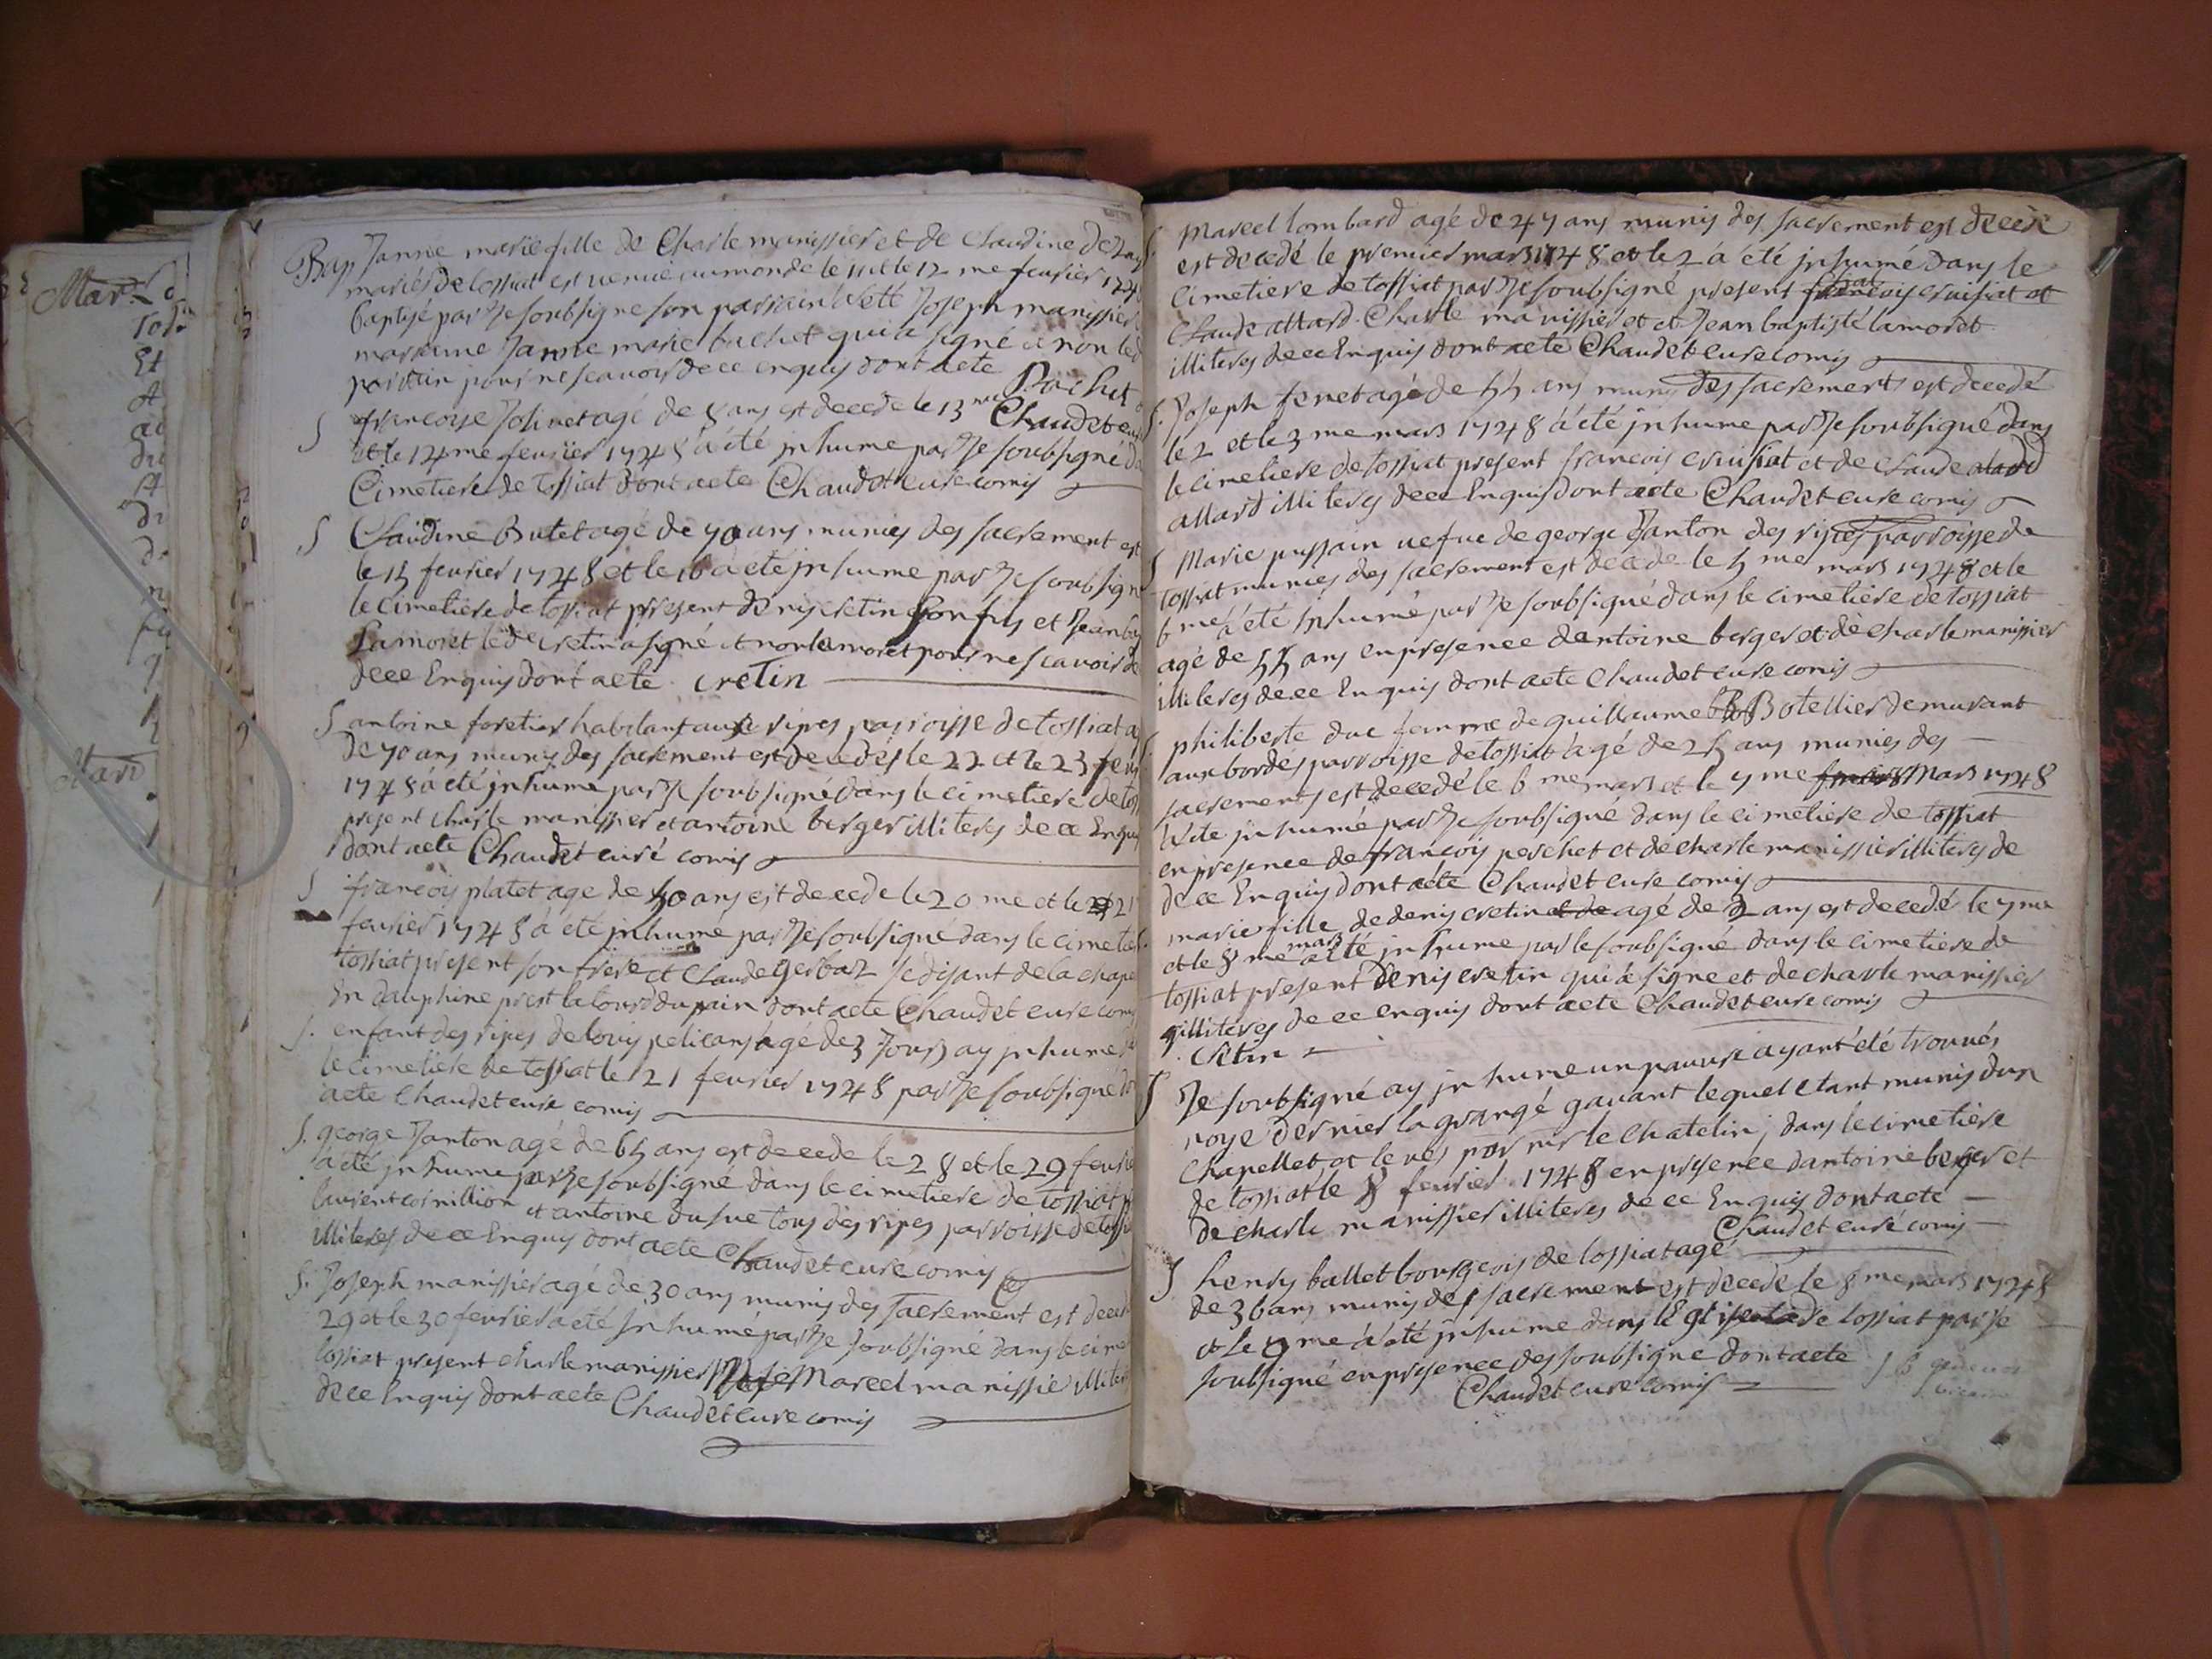 Bap Janne marie fille de Charle manissier et de Claudine
mariés de tossiat est venue au monde le 11 et le 12 me feurier 174
baptisé par Je soubsigne son parrain Joseph manissier
marainne Janne marie buchet qui a signé et non led
parain pour ne scavoir de ce enquis dont acte Bachet
S francoise Jolinet agé de 8 ans est decede le 13 me Chaudet cure
et le 14 me feurier 1748 a été jnhume par Je soubsigne da
Cimetiere de tossiat dont acte Chaudet cure comis
S Claudine Butet agé de 70 ans munies des sacrement est
le 15 feurier 1748 et le 16 a eté jnhume par Je soubsigne
le cimetiere de tossiat present denis cretin son fils et Jean ba
Lamoret le de cretin a signé et non lamoret pour ne scavoir de
de ce Enquis dont acte cretin
S antoine foretier habitant aux ripes parroisse de tossiat a
de 70 ans munis des sacrement est decedés le 22 et le 23 feur
1748 a eté jnhume par Je soubsigné dans le cimetiere de tos
present charle manissier et antoine berger illiteres de ce Enquis
dont acte Chaudet curé comis
S francois platet age de 50 ans est decede le 20 me et le 21
feurier 1748 a eté jnhumé par Je soubsigné dans le cimetie
tossiat present son frere et Claude gerbaz se disant de la chape
En dauphine prest la tour du pain dont acte Chaudet cure comis
S. enfant des ripes de louis pelicans agé de 3 Jours ay jnhumé
le cimetiere de tossiat le 21 feurier 1748 par Je soubsigné don
acte Chaudet cure comis
S. george Janton agé de 65 ans est decede le 28 et le 29 feurie
a été jnhume par Je soubsigné dans le cimetiere de tossiat p
laurent cornillion et antoine dusue tous des ripes parroisse de tossi
illiteres de ce Enquis dont acte Chaudet cure comis
S. Joseph manissier agé de 30 ans munis des sacrement est dece
29 et le 30 feurier a eté Jnhumé par Je soubsigné dans le cime
tossiat present charle manissier Marcel manissie illiter
de ce Enquis dont acte Chaudet cure comis
S. Marcel lombard agé de 47 ans munis des sacrement est decede
est decedé le premier mars 1748 et le 2 a été jnhumé dans le
cimetiere de tossiat par Je soubsigné present francois cruisiat et
Claude allard. Charle manissier et et Jean baptiste lamoret
illiteres de ce Enquis dont acte Chaudet cure comis
S. Joseph feret agé de 55 ans munis des sacrements est decedé
le 2 et le 3 me mars 1748 a été jnhume par Je soubsigné dans
le cimetiere de tossiat present francois cruisiat et de claude alardd
allard illiteres de ce Enquis dont acte Chaudet cure comis
S Marie pussain uefue de george Janton des ripes parroisse de
tossiat munies des sacrement est decede le 5 me mars 1748 et le
6 me a été Jnhumé par Je soubsigné dans le cimetiere de tossiat
agé de 55 ans en presence dantoine berger et de charle manissier
illiteres de ce Enquis dont acte Chaudet cure comis
S. philiberte duc femme de guillaume Botellier demurant
aux bordes parroisse de tossiat agé de 25 ans munies des
sacrements est decedé le 6 me mars et le 7 me Mars 1748
a eté jnhumé par Je soubsigné dans le cimetiere de tossiat
en presence de francois perchet et de charle manissier illiteres de
de ce Enquis dont acte Chaudet cure comis
S. marie fille de denis cretin et de agé de 2 ans est decedé le 7 me
et le 8 me mars a eté jnhume par le soubsigné dans le cimetiere de
tossiat present denis cretin qui a signe et de charle manissier
illiteres de ce enquis dont acte Chaudet cure comis
cretin
S Je soubsigné ay jnhume un pauure ayant été trouués
noye dernier la grangé gauant lequel etant munis dun
Chapellet et leués par mr le chatelin, dans le cimetiere
de tossiat le 8 feurier 1748 en presence dantoine berger et
de charle manissier illiteres de ce Enquis dont acte
Chaudet curé comis
S henry ballet bourgeois de tossiat agé
de 36 ans munis des sacrement est decede le 8 me mars 1748
et le 9 me a été jnhume dans lEglise de tossiat par Je
soubsigné en presence des soubsigne dont acte
Chaudet cure comis
Mar
Mar